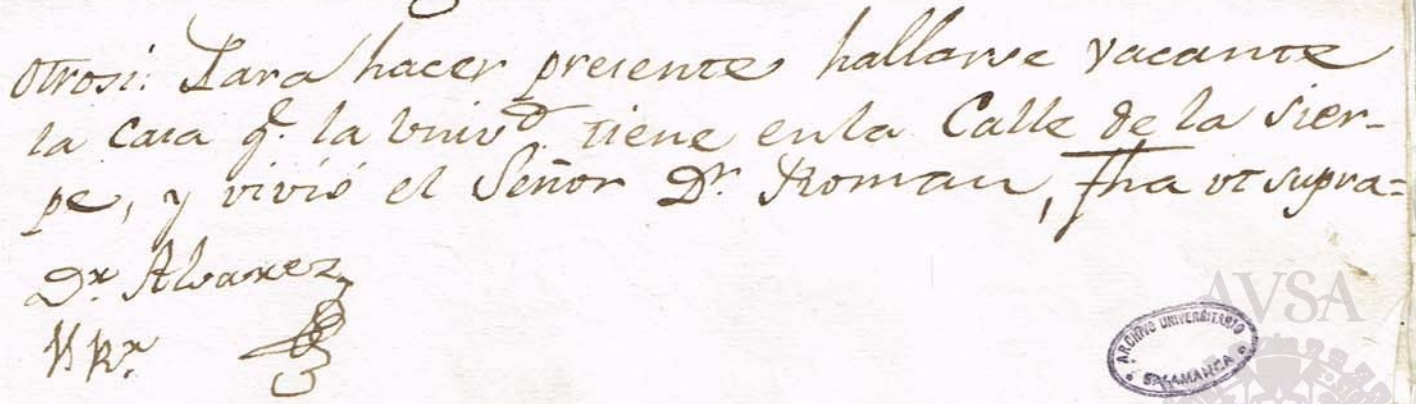 otrosi: Para hacer presente hallarse vacante
la casa q.e la Univ.d tiene en la Calle de la Sier-
pe, y vivió el Señor D.r Roman, fha ut supra=
D.r Alvarez
V. R.r
ARCHIVO UNIVERSITARIO
SALAMANCA
AVSA